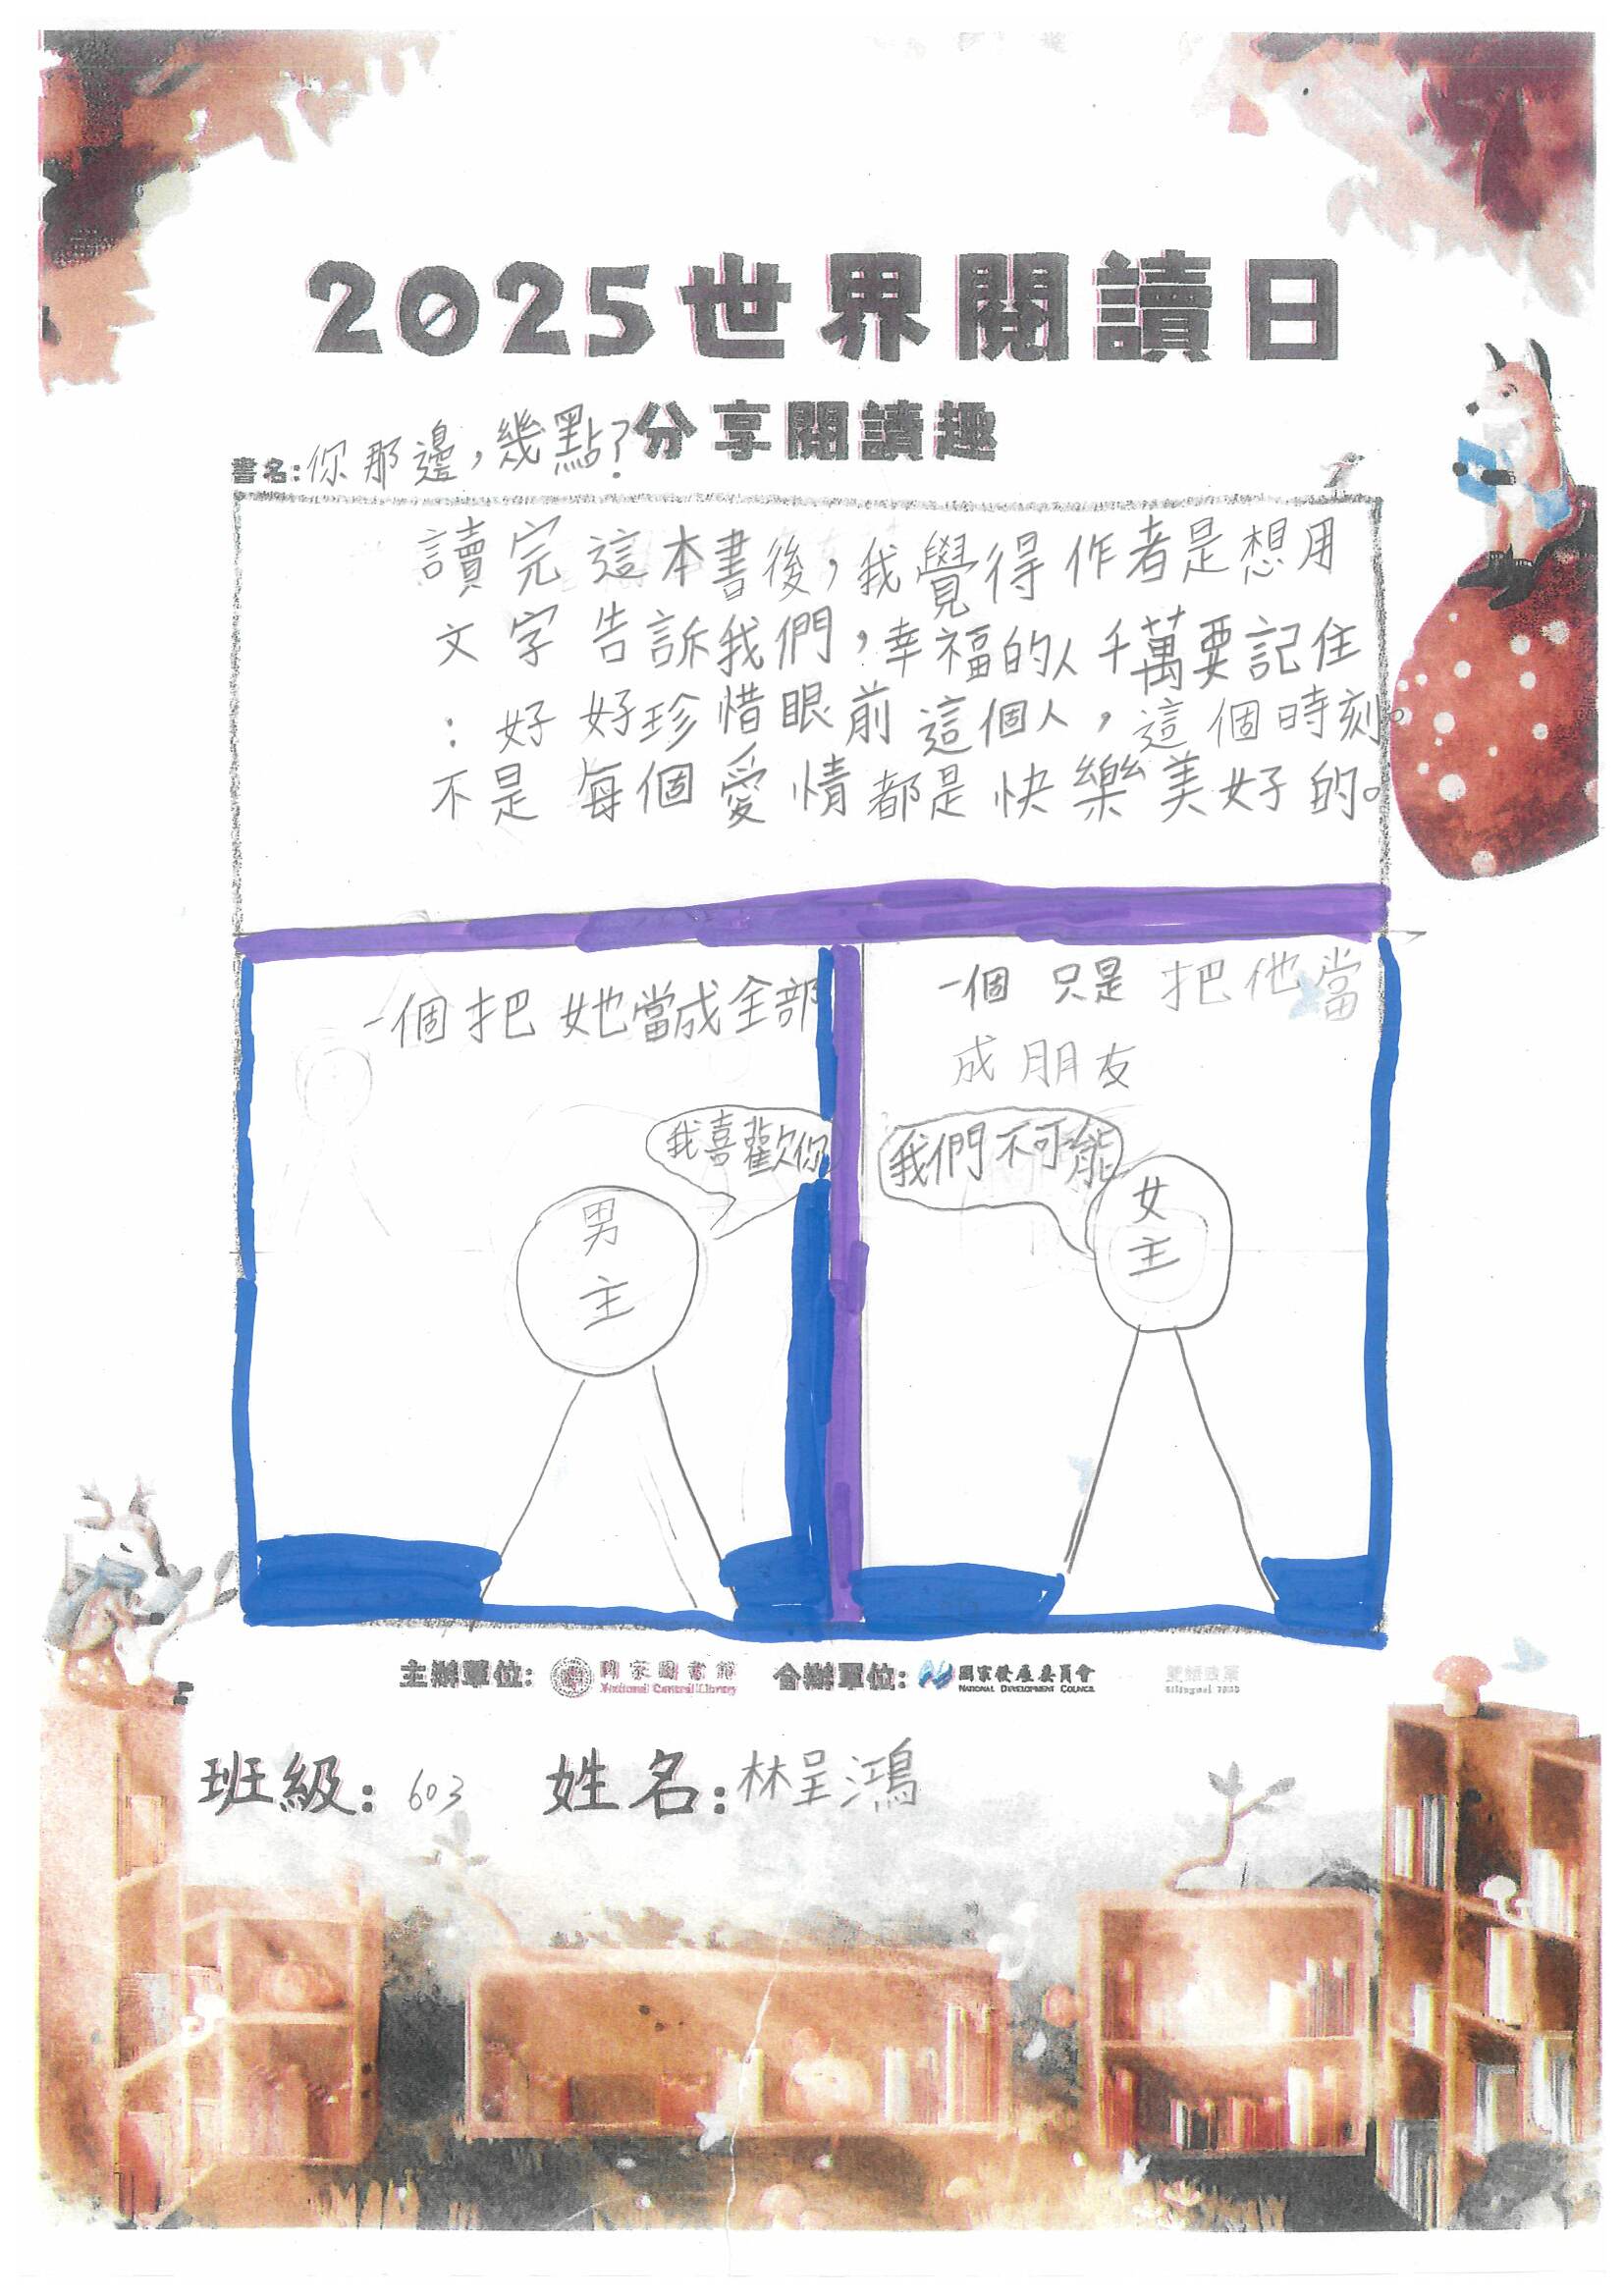 2025世界閱讀日
分享閱讀趣
書名:你那邊,幾點?
讀完這本書後,我覺得作者是想用
文字告訴我們,幸福的人千萬要記住
:好好珍惜眼前這個人,這個時刻。
不是每個愛情都是快樂美好的。
一個把她當成全部
我喜歡你
男
主
一個只是把他當
成朋友
我們不可能
女
主
主辦單位: 國家圖書館 National Central Library 合辦單位: 國家發展委員會 NATIONAL DEVELOPMENT COUNCIL
班級: 603 姓名:林呈鴻